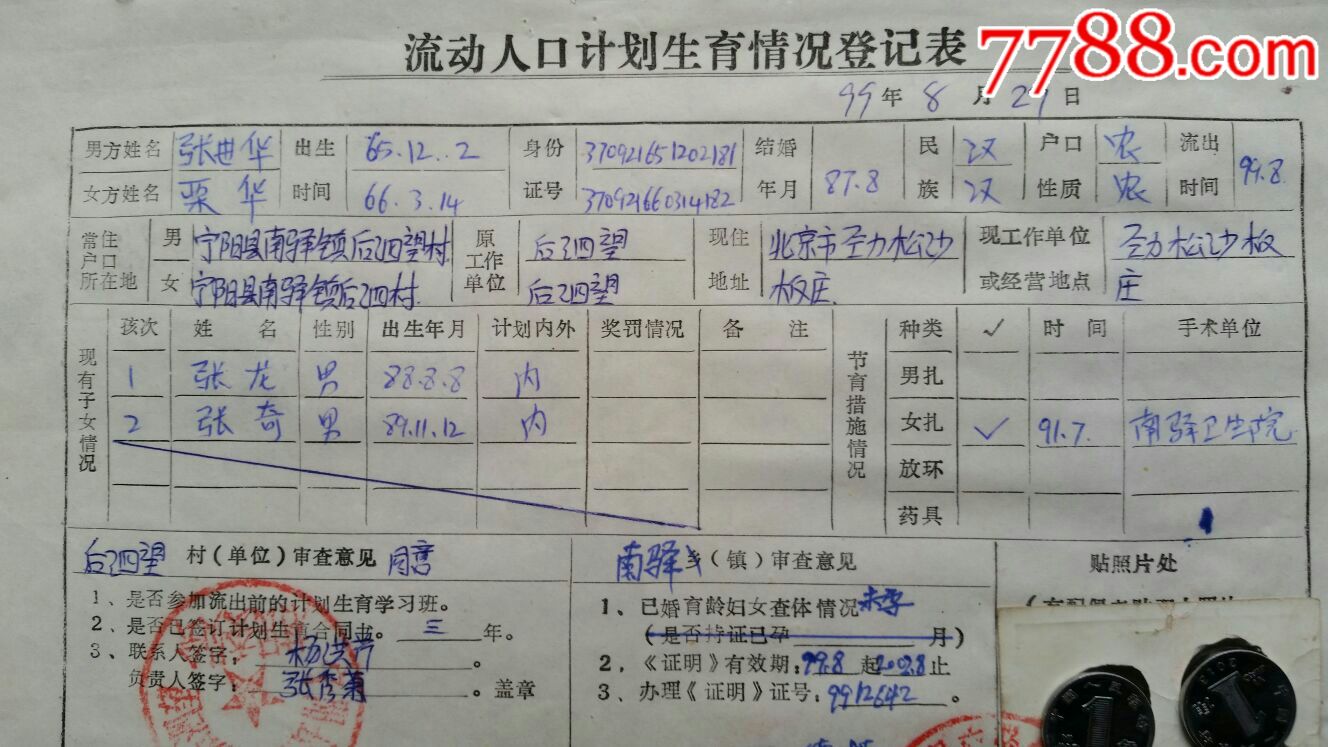 流动人口计划生育情况登记表
7788.com
99年 8 月 29 日
男方姓名 张世华 出生 65.12.2 身份 370921651202181 结婚 民 汉 户口 农 流出
女方姓名 栗华 时间 66.3.14 证号 370921660314182 年月 87.8 族 汉 性质 农 时间 99.8
常住户口所在地 男 宁阳县南驿镇后泗望村 原工作单位 后泗望 现住 北京市劲松沙 现工作单位 劲松沙板
女 宁阳县南驿镇后泗村 后泗望 地址 板庄 或经营地点 庄
现有子女情况 孩次 姓 名 性别 出生年月 计划内外 奖罚情况 备 注 节育措施情况 种类 ✓ 时 间 手术单位
1 张龙 男 88.8.8 内 男扎
2 张奇 男 89.11.12 内 女扎 ✓ 91.7. 南驿卫生院
放环
药具
后泗望 村(单位)审查意见 同意
1、是否参加流出前的计划生育学习班。
2、是否已签订计划生育合同书。三年。
3、联系人签字:杨洪芹。
负责人签字:张秀菊。盖章
南驿乡(镇)审查意见
1、已婚育龄妇女查体情况 未孕
(是否持证已孕 月)
2、《证明》有效期:99.8 起2002.8止
3、办理《证明》证号:9912642。
贴照片处